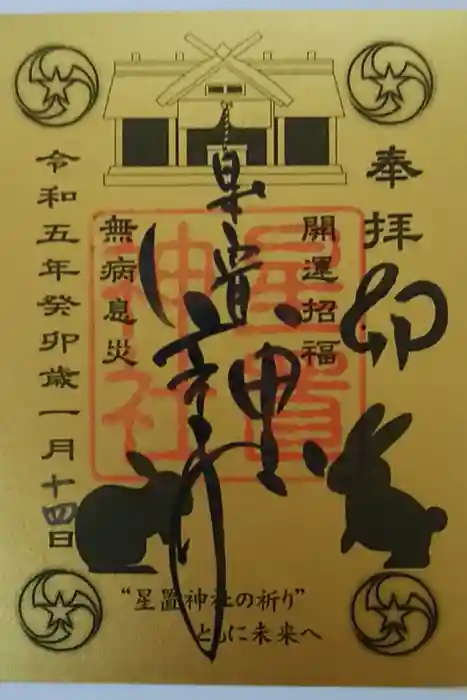 奉拝
卯
開運招福
星置神社
無病息災
令和五年癸卯歳一月十四日
星置神社
“星置神社の祈り”
ともに未来へ